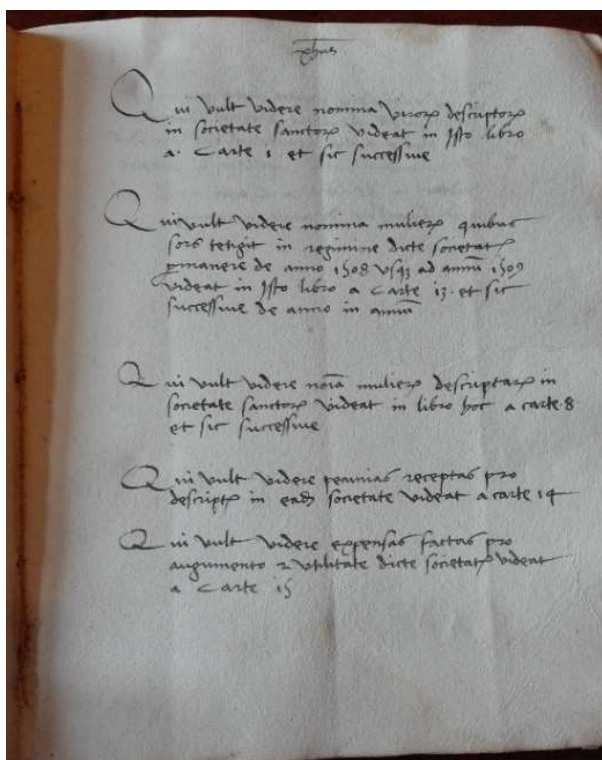 Qui vult videre nomina viroꝝ descriptoꝝ
in societate sanctoꝝ videat in Isto libro
a. Carte 1 et sic successive
Qui vult videre nomina mulieꝝ quibus
sors tetigit in regimine dicte societatꝭ
ꝑmanere de anno 1508 usqꝫ ad annū 1509
videat in Isto libro a Carte 13. et sic
successive de anno in annū
Qui vult videre noīa mulieꝝ descriptaꝝ in
societate sanctoꝝ videat in libro hoc a carte 8
et sic successive
Qui vult videre pecunias receptas pro
descriptꝭ in eadꝫ societate videat a carte 14
Qui vult videre expensas factas pro
augumento ⁊ utilitate dicte societatꝭ videat
a Carte 15